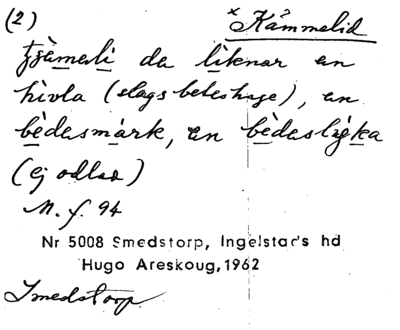 (2) × Kåmmelid
tjsàmesli da liknar en
hivla (slags beteshage), en
bèdesmàrk, en bèdeslýcka
(ej odlas)
M. f. 94
Nr 5008 Smedstorp, Ingelstad's hd
Hugo Areskoug, 1962
Smedstorp